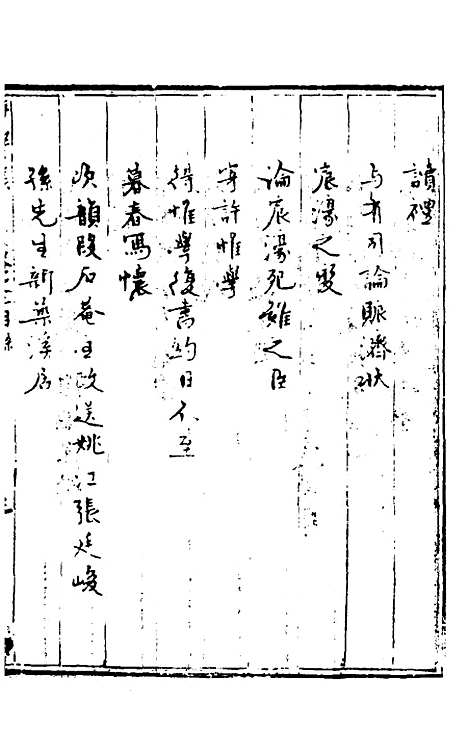 讀禮
与有司論賑濟狀
宸濠之變
論宸濠死難之臣
寄許惟學
得惟學復書約日不至
暮春寫懷
次韻段石菴主政送姚江張廷峻
孫先生新築溪居